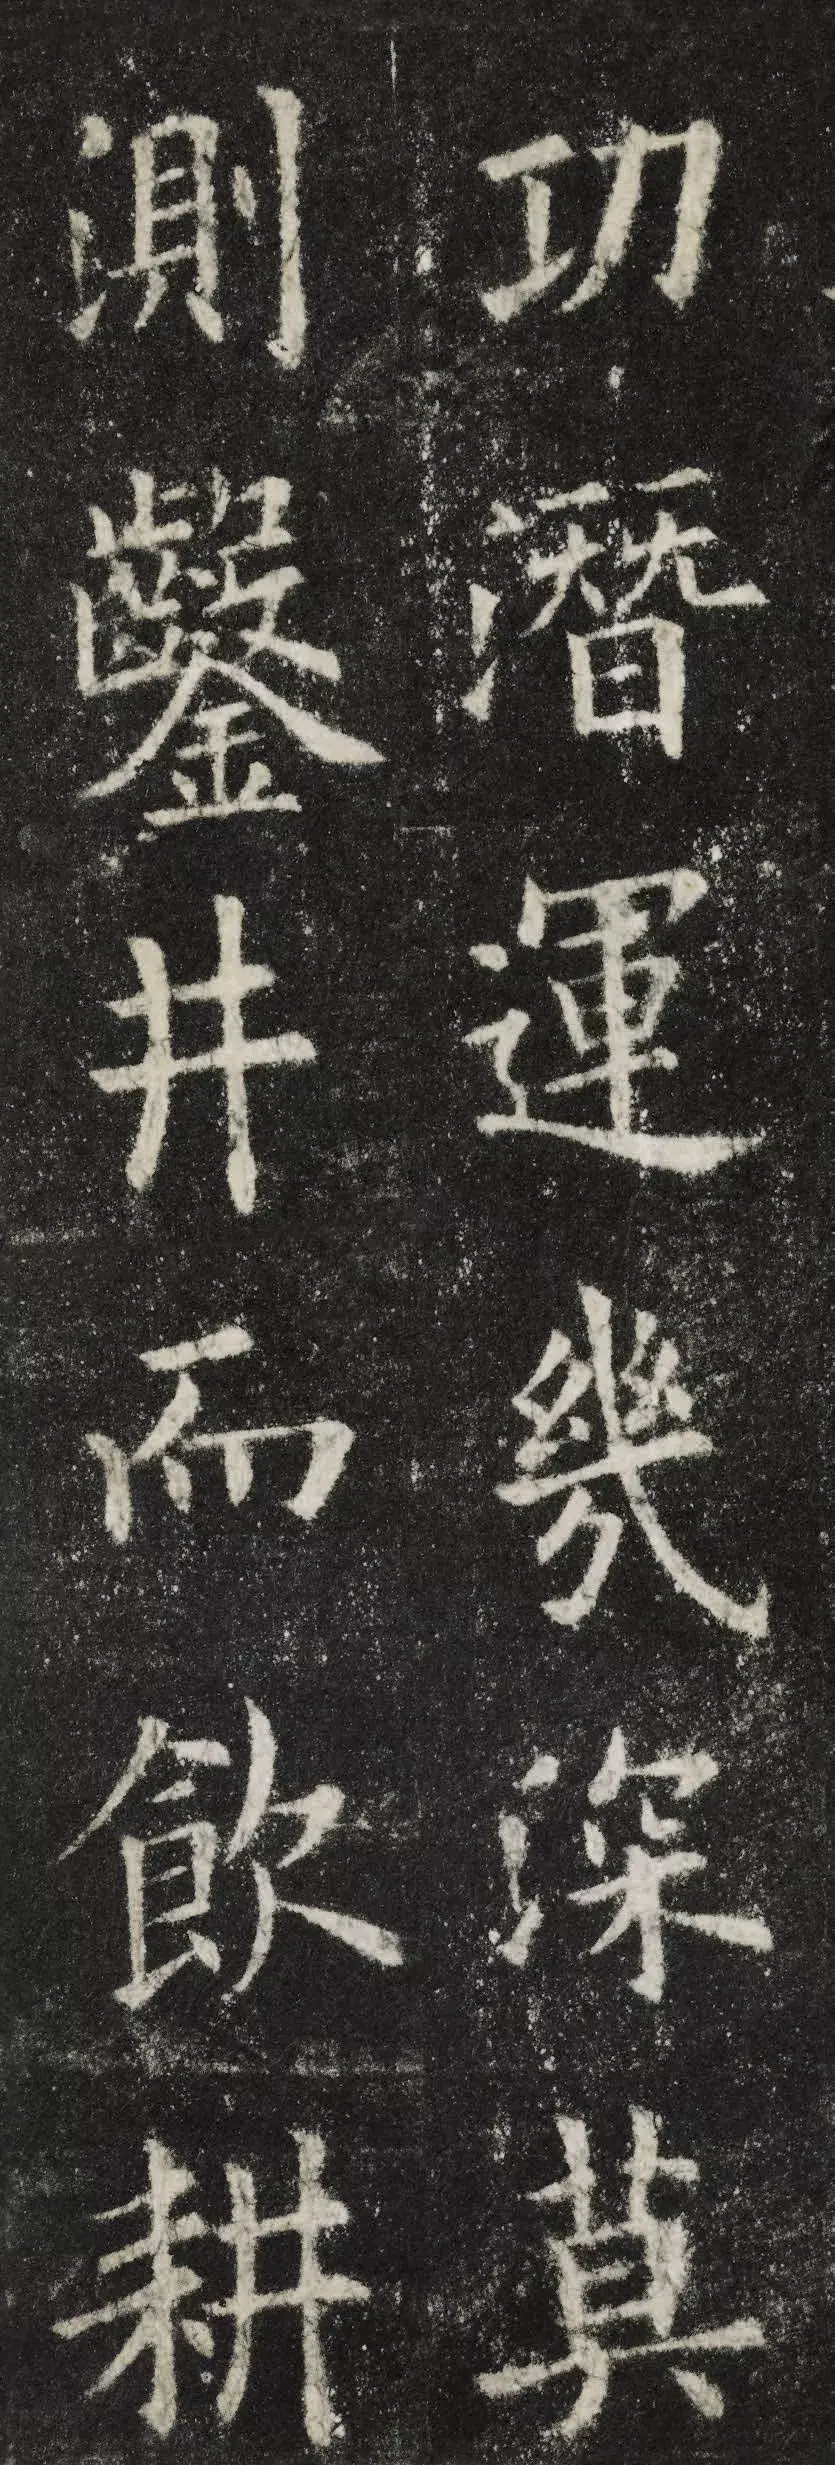 功潛運幾深莫
測鑿井而飲耕